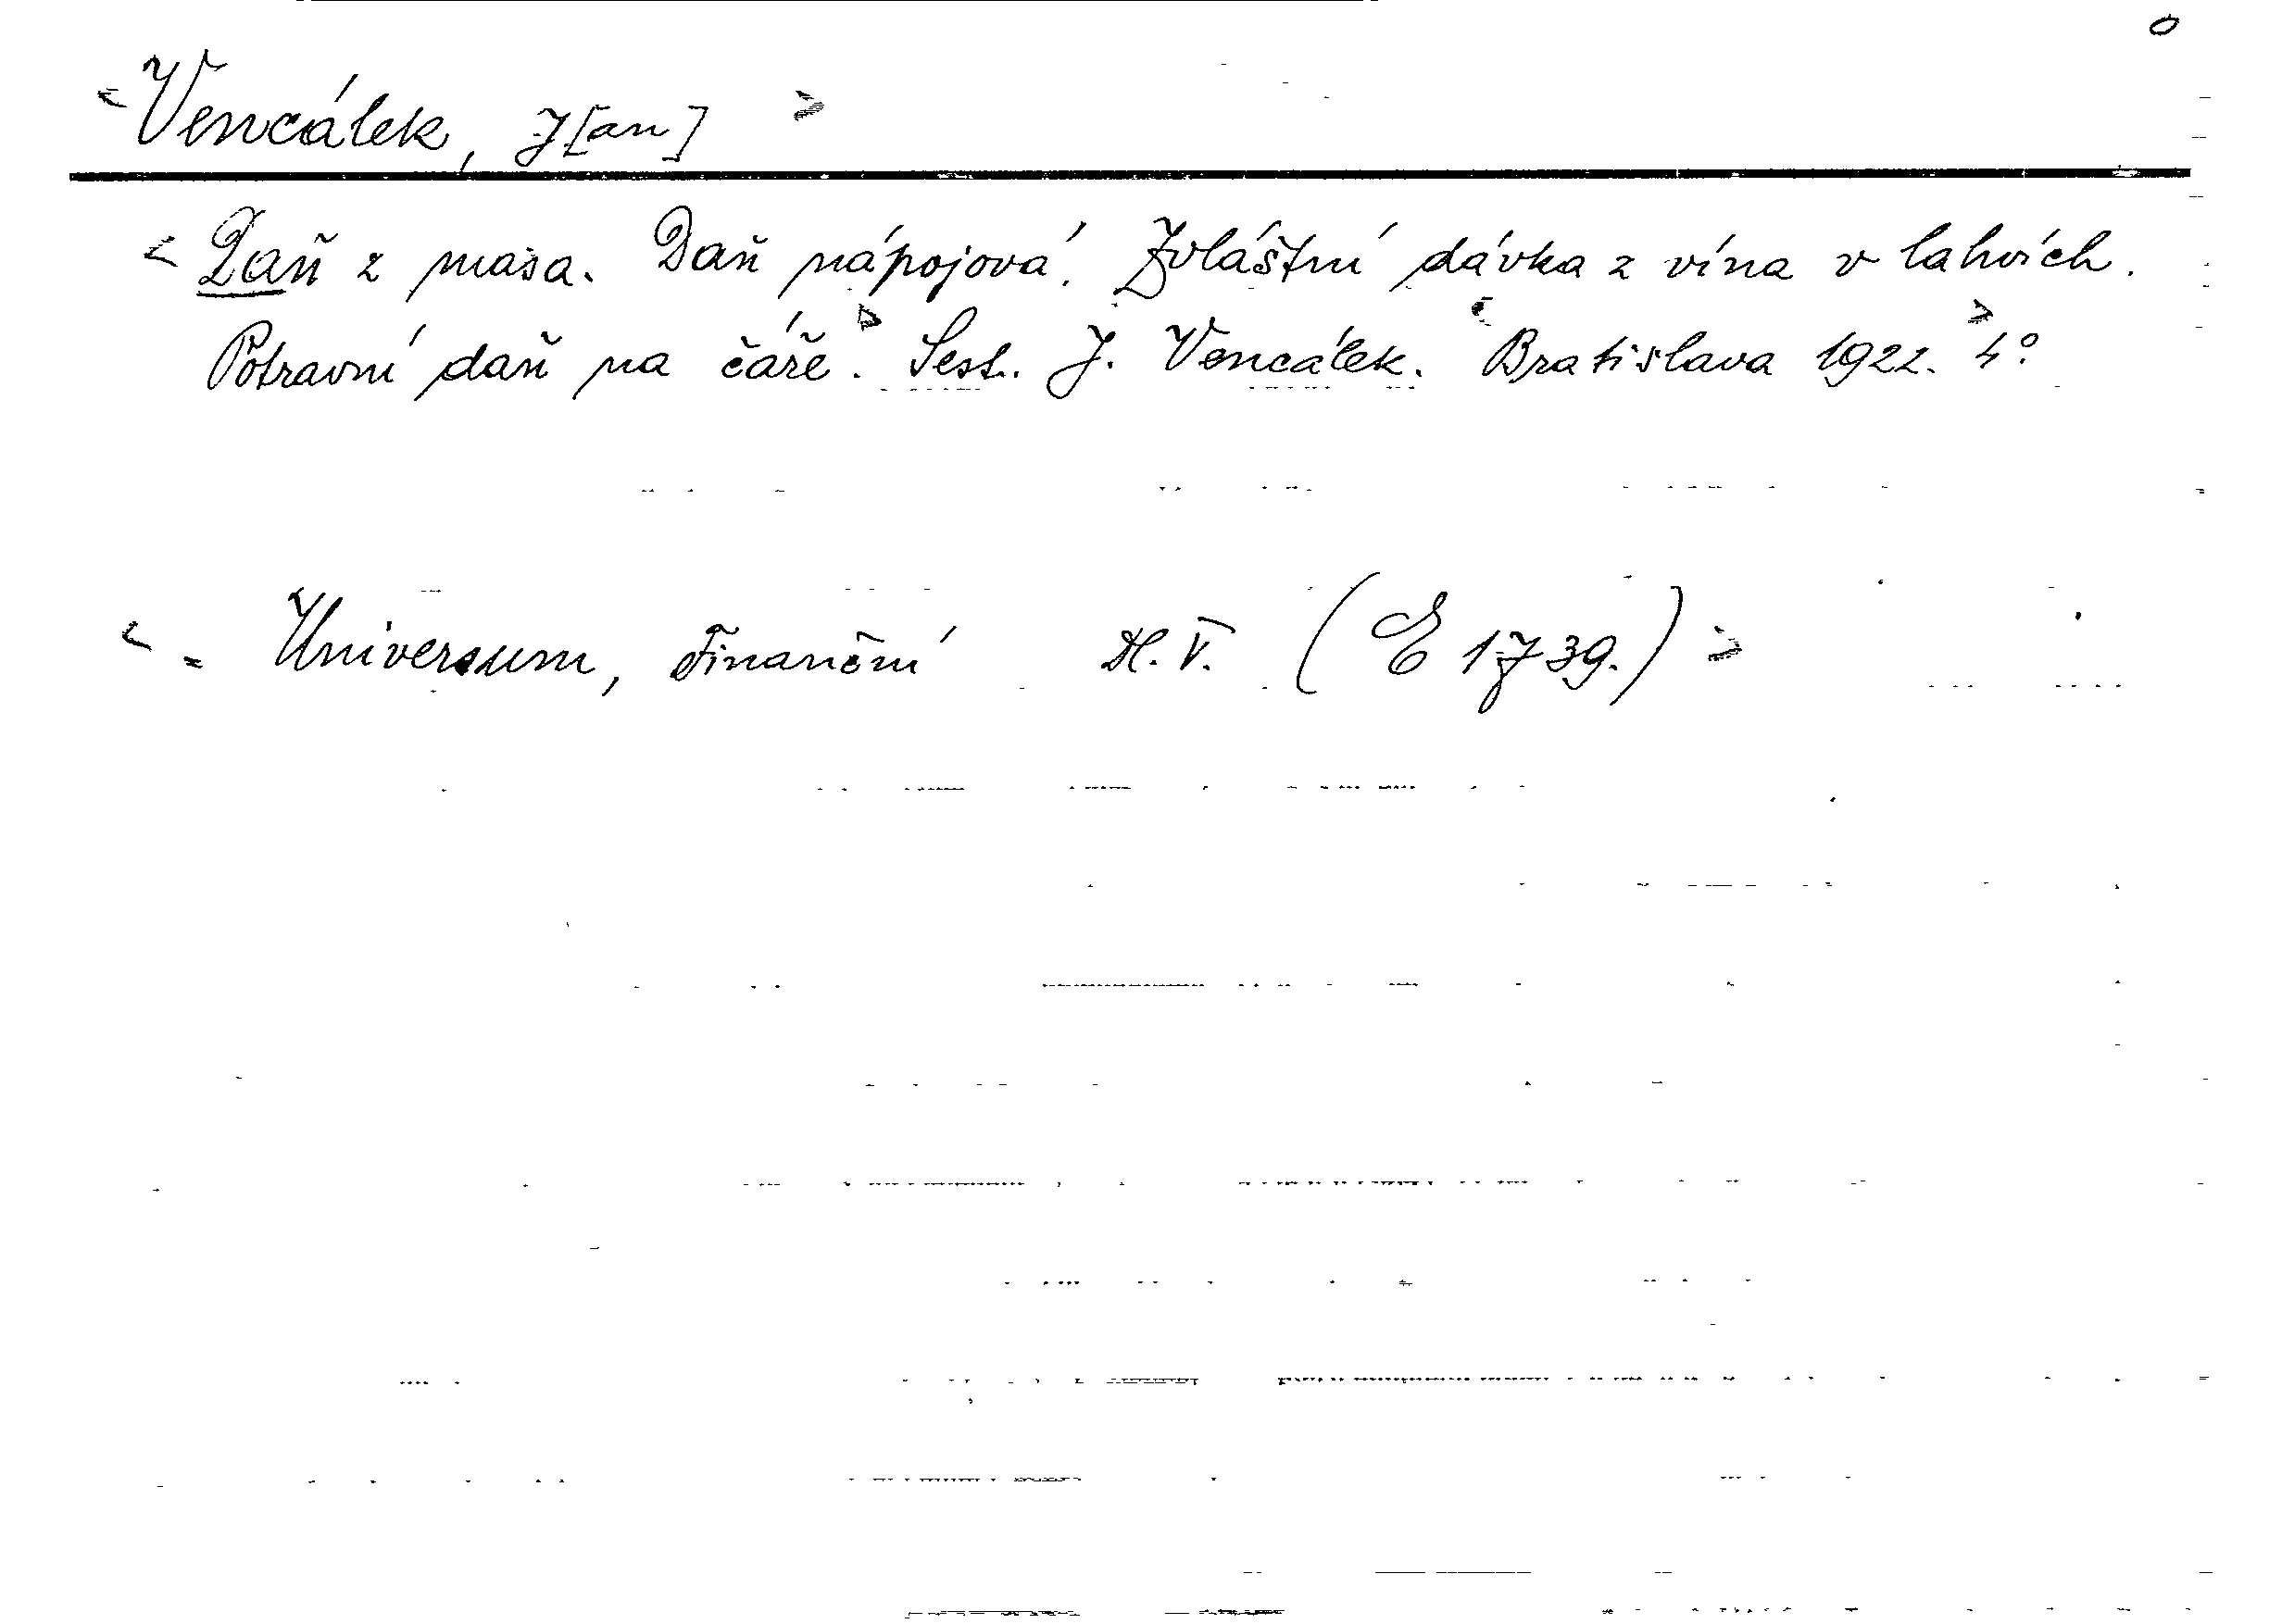 o
< Vencálek, J[an] >
< Daň z masa. Daň nápojová. Zvláštní dávka z vína v lahvích.
Potravní daň na čáře. > Sest. J. Vencálek. < Bratislava 1922. > 4°.
< = Universum, Finanční Dl. V. (E 1739.) >